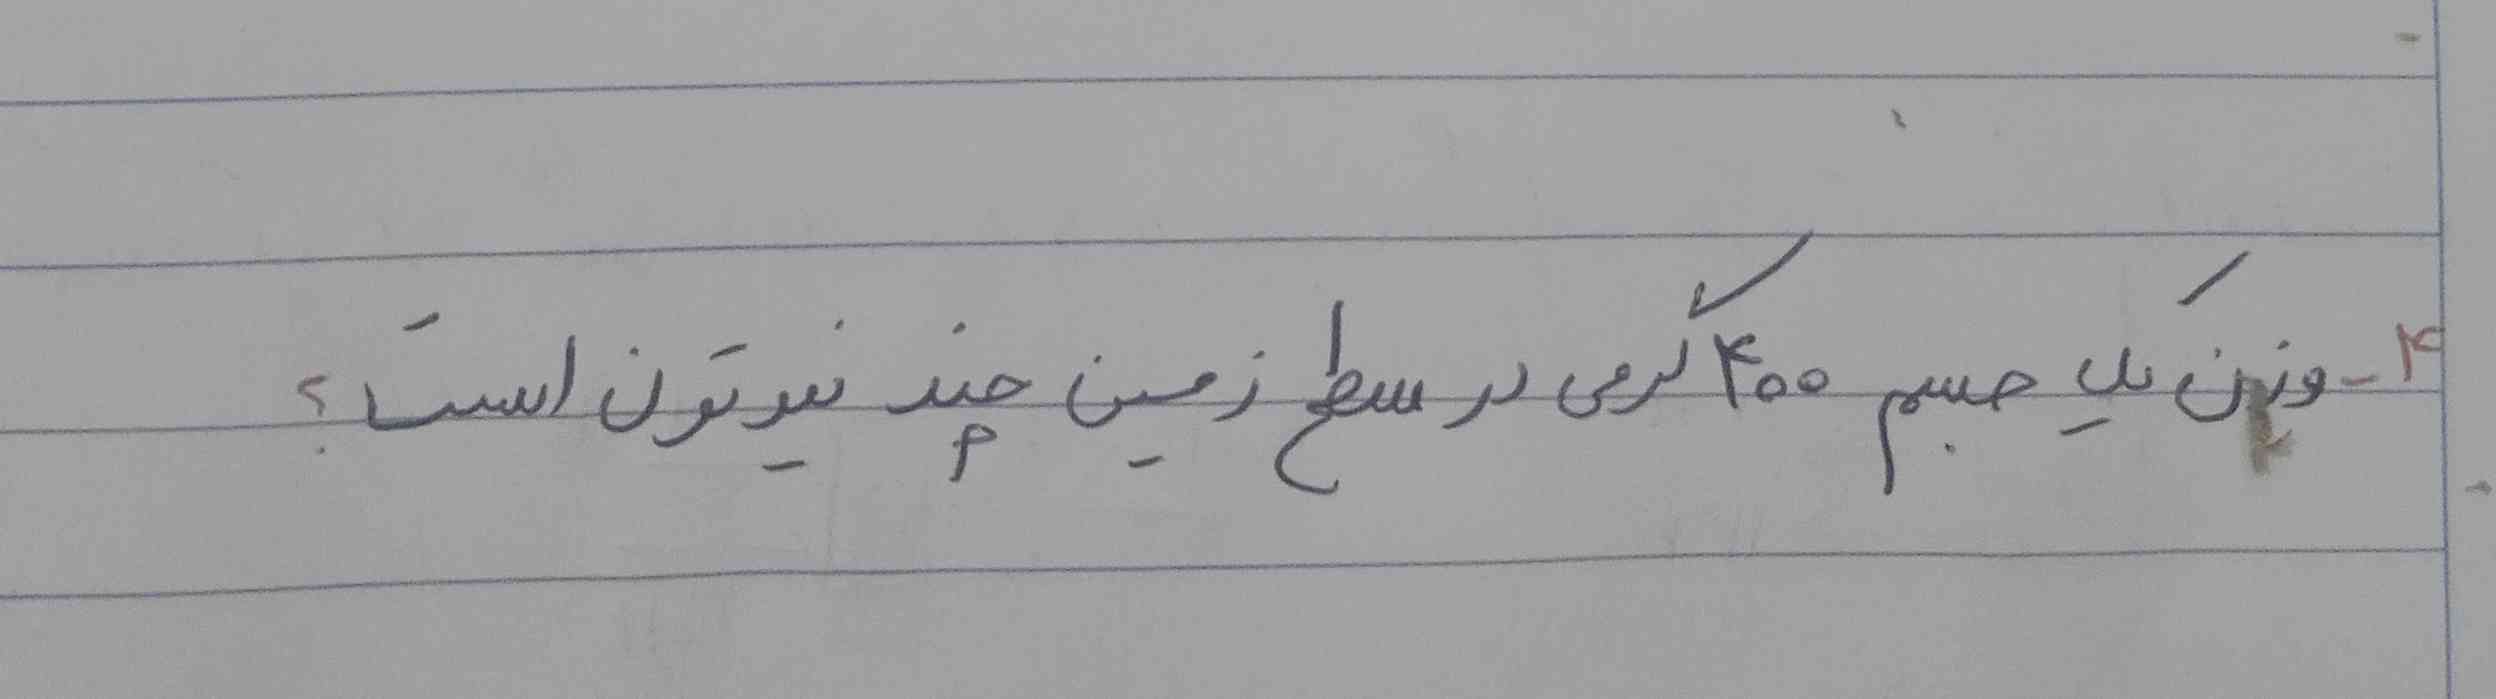 ۴- وزن یک جسم ۴۰۰ گرمی در سطح زمین چند نیوتون است؟